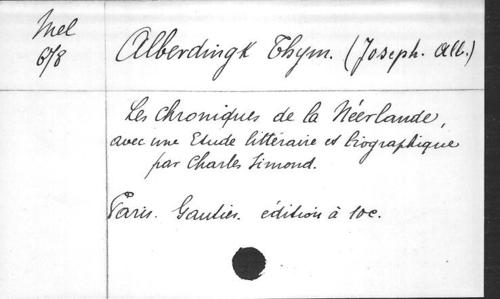 Mel
678
Alberdingk Thym. (Joseph. Alb.)
Les chroniques de la Néerlande,
avec une Etude littéraire et biographique
par Charles Simond.
Paris. Gautier. édition à 10c.